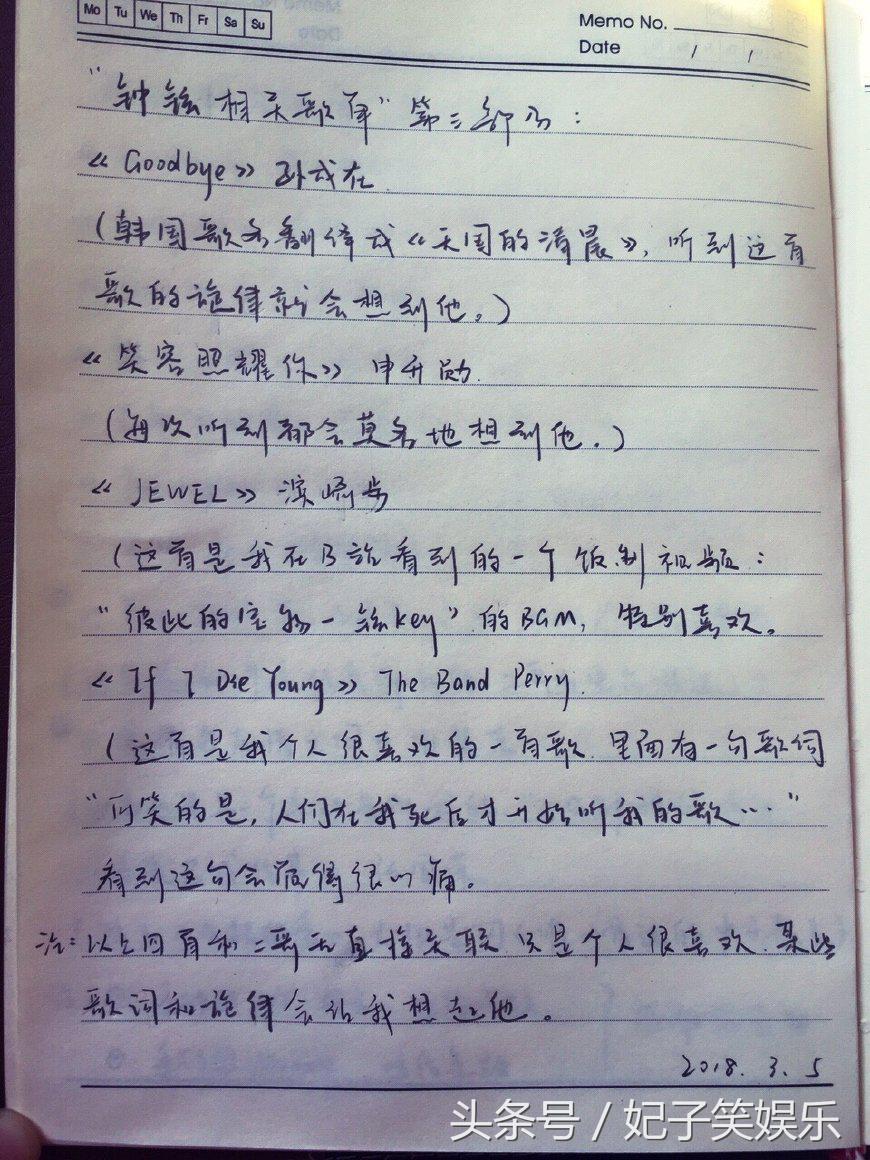 Mo Tu We Th Fr Sa Su
Memo No.
Date / /
"钟铉相关歌单"第三部分:
《Goodbye》孙成在
(韩国歌名翻译成《天国的清晨》,听到这首
歌的旋律就会想到他。)
《笑容照耀你》申升勋
(每次听到都会莫名地想到他。)
《JEWEL》滨崎步
(这首是我在B站看到的一个饭制视频:
"彼此的宝物-铉key"的BGM,特别喜欢。
《If I Die Young》The Band Perry
(这首是我个人很喜欢的一首歌.里面有一句歌词
"可笑的是,人们在我死后才开始听我的歌..."
看到这句会觉得很心痛。
注:以上四首和二哥无直接关联只是个人很喜欢.某些
歌词和旋律会让我想起他。
2018.3.5
头条号/妃子笑娱乐